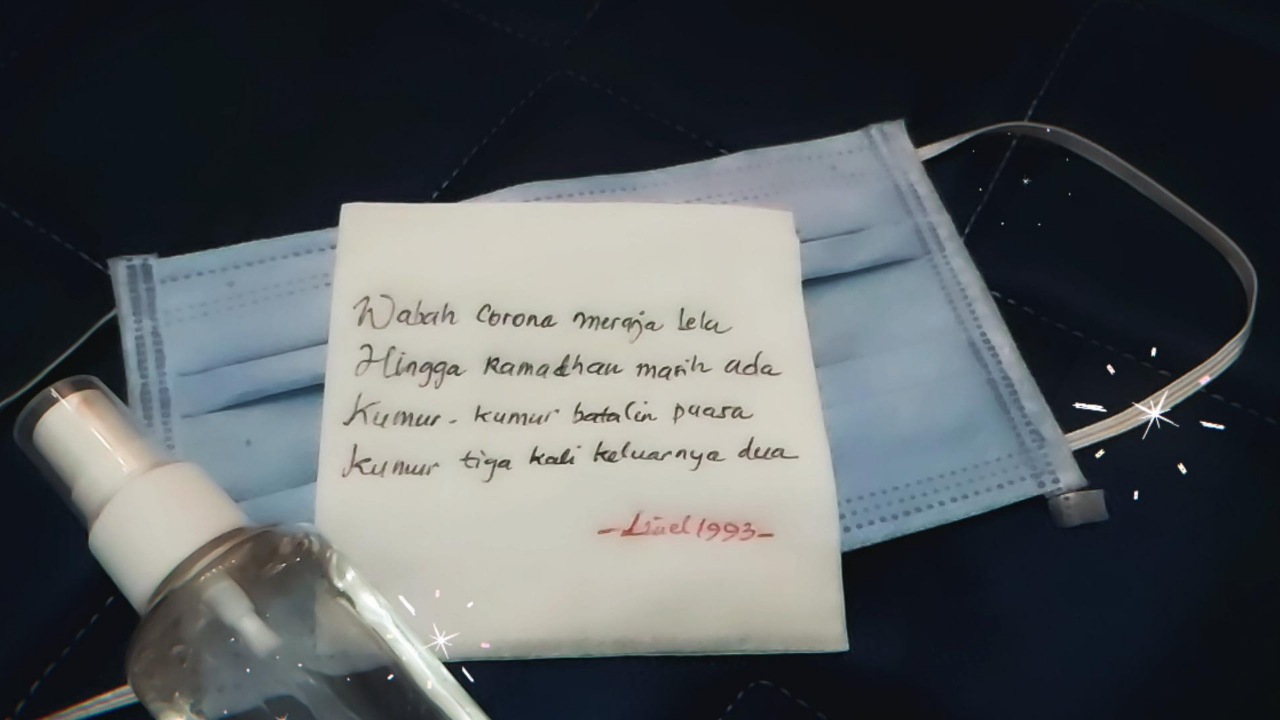 Wabah Corona meraja lela
Hingga Ramadhan masih ada
Kumur-kumur batalin puasa
Kumur tiga kali keluarnya dua